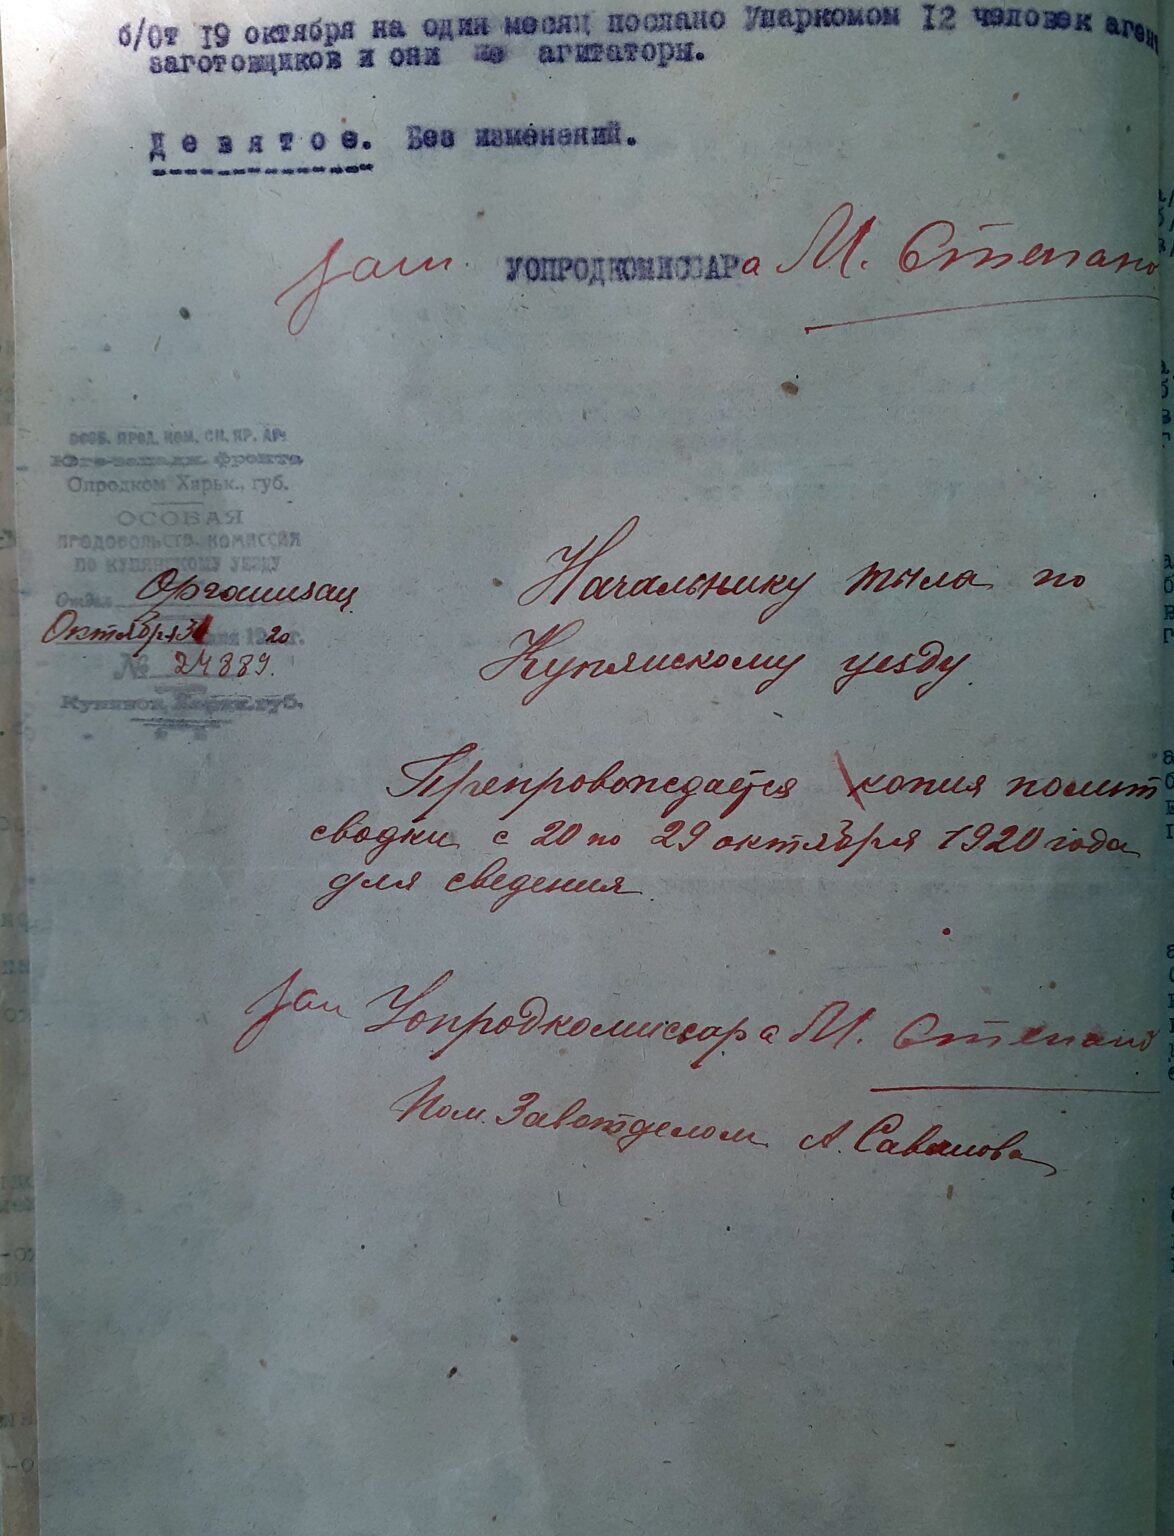 б/От 19 октября на один месяц послано Упаркомом 12 человек аген
заготовщиков и они же агитаторы.
Девятое. Без изменений.
Зам. УОПРОДКОМИССАРа М. Степано
ОСОБ. ПРОД. КОМ. СН. ЯР. АР.
Юго-западн. фронта
Опродком Харьк., губ.
ОСОБАЯ
ПРОДОВОЛЬСТВ. КОМИССИЯ
ПО КУПЯНСКОМУ УЕЗДУ
Отдел Организац
Октября 31 20 г.
№ 24889.
Купянск, Харьк. губ.
Начальнику тыла по
Купянскому уезду.
Препровождается копия полит
сводки с 20 по 29 октября 1920 года
для сведения
Зам Уопродкомиссара М. Степано
Пом. Завотделом А.